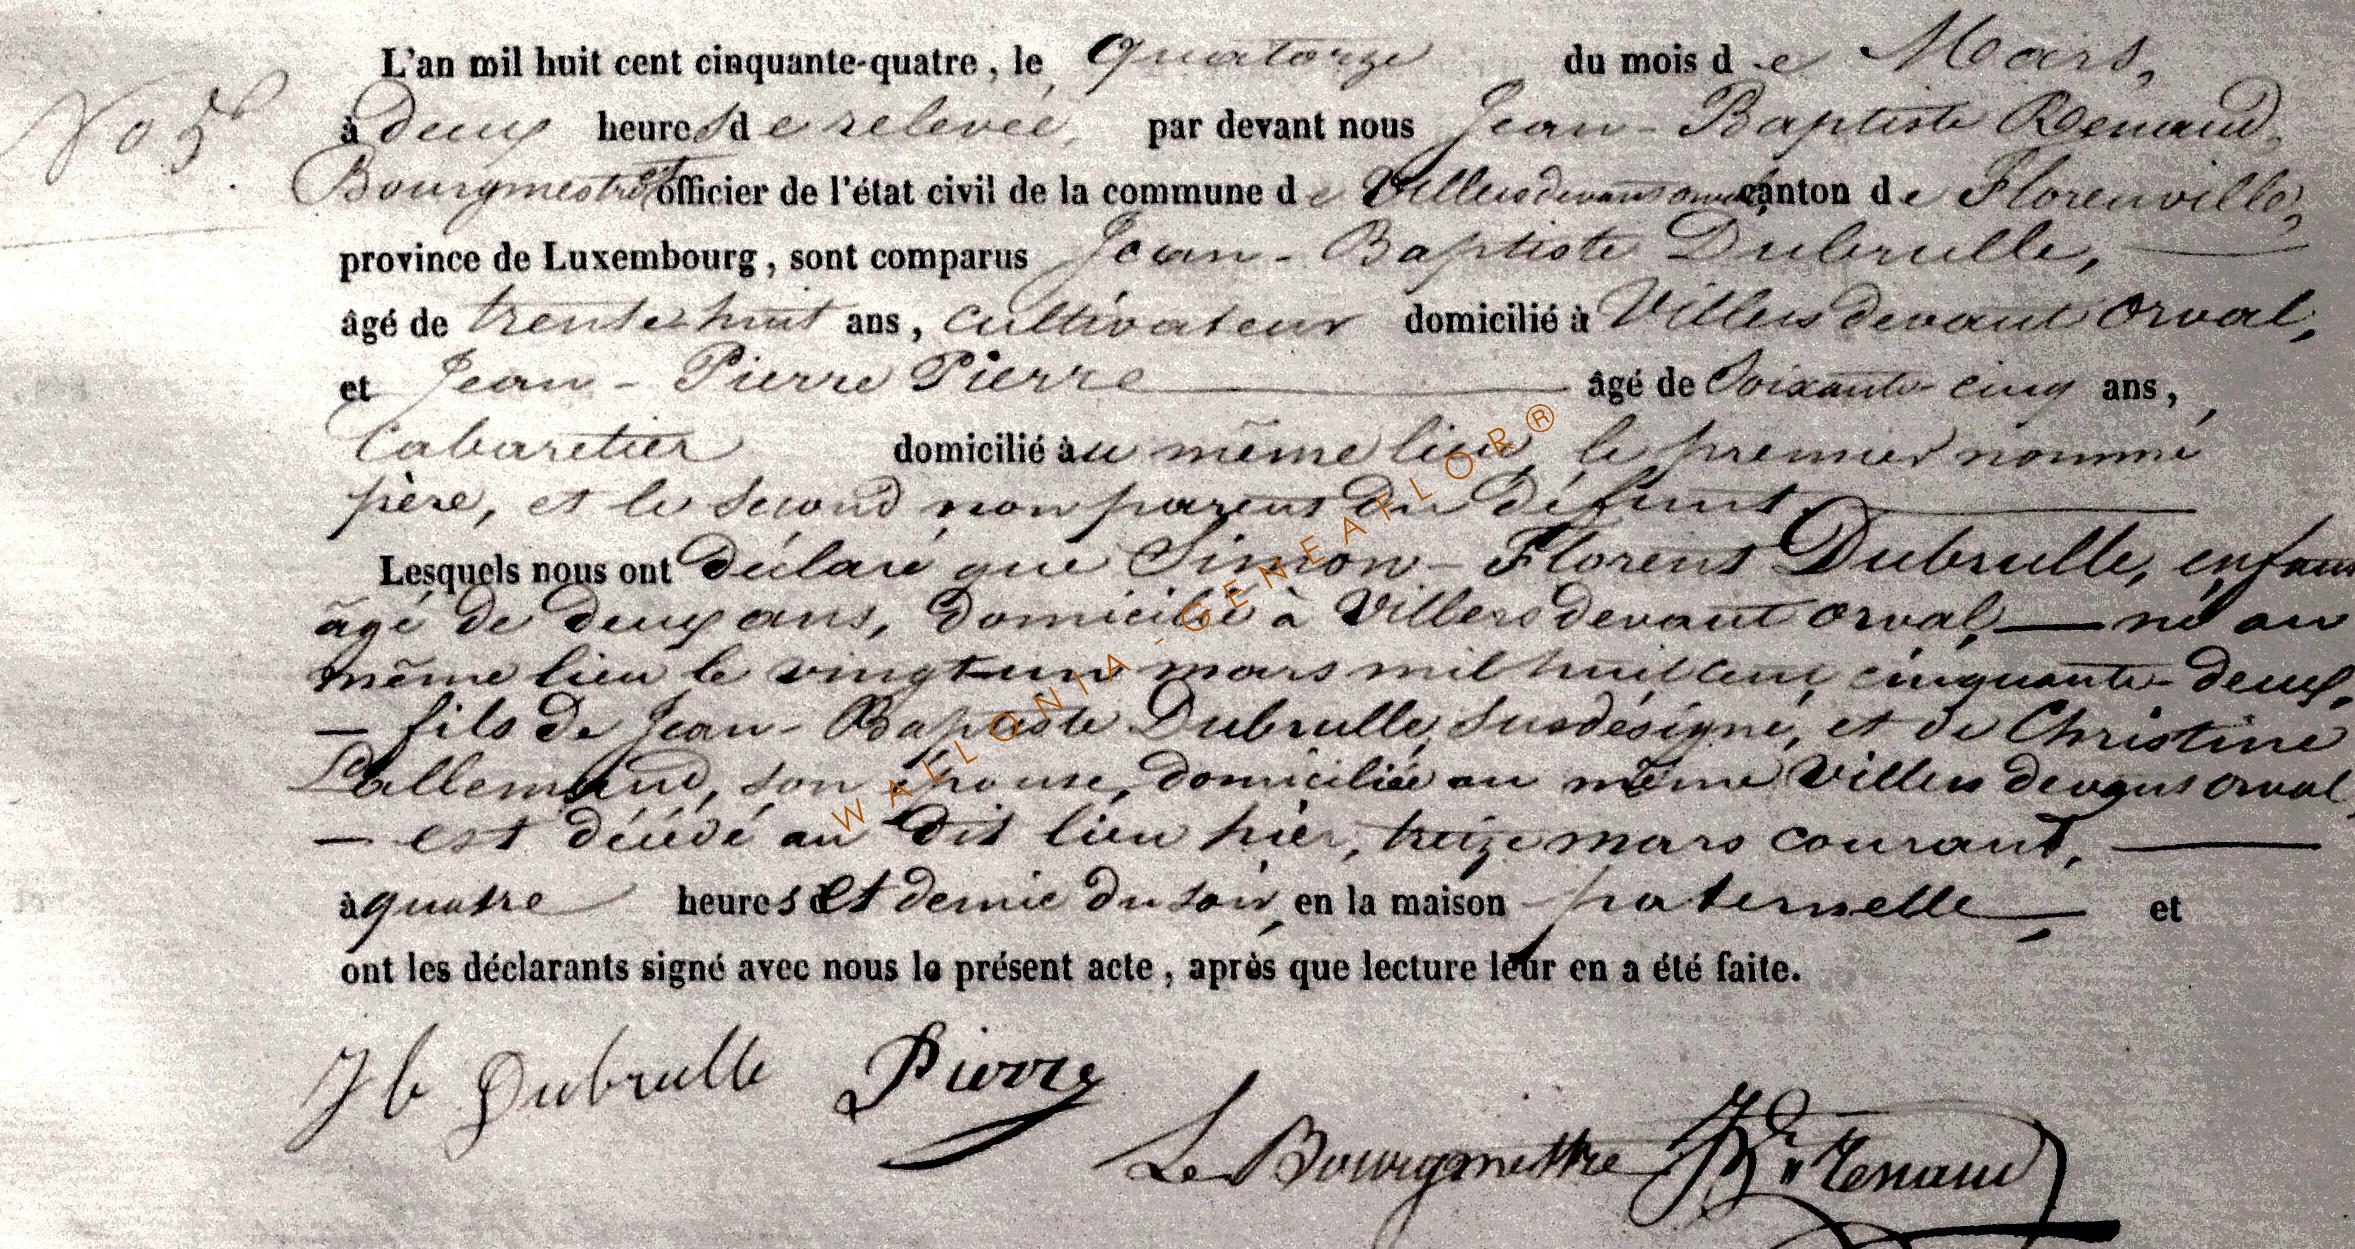 L'an mil huit cent cinquante-quatre, le quatorze du mois de Mars,
No 5
à deux heures de relevée, par devant nous Jean-Baptiste Renaud,
Bourgmestre et officier de l'état civil de la commune de Villers devant orval, canton de Florenville,
province de Luxembourg, sont comparus Jean-Baptiste Dubrulle,
âgé de trente-huit ans, cultivateur domicilié à Villers devant Orval,
et Jean-Pierre Pierre âgé de Soixante-cinq ans,
Cabaretier domicilié au même lieu le premier nommé
père, et le second non parent du défunt
Lesquels nous ont déclaré que Simon-Florent Dubrulle, enfant
âgé de deux ans, domicilié à Villers devant orval, — né au
même lieu le vingt-un mars mil huit cent cinquante-deux,
— fils de Jean-Baptiste Dubrulle, susdésigné, et de Christine
Lallemand, son épouse, domiciliée au même Villers devant orval,
— est décédé au dit lieu hier, treize mars courant, —
à quatre heures et demie du soir, en la maison paternelle, et
ont les déclarants signé avec nous le présent acte, après que lecture leur en a été faite.
J b Dubrulle Pierre
Le Bourgmestre JBte Renaud
WALLONIA-GENEAFLOR®